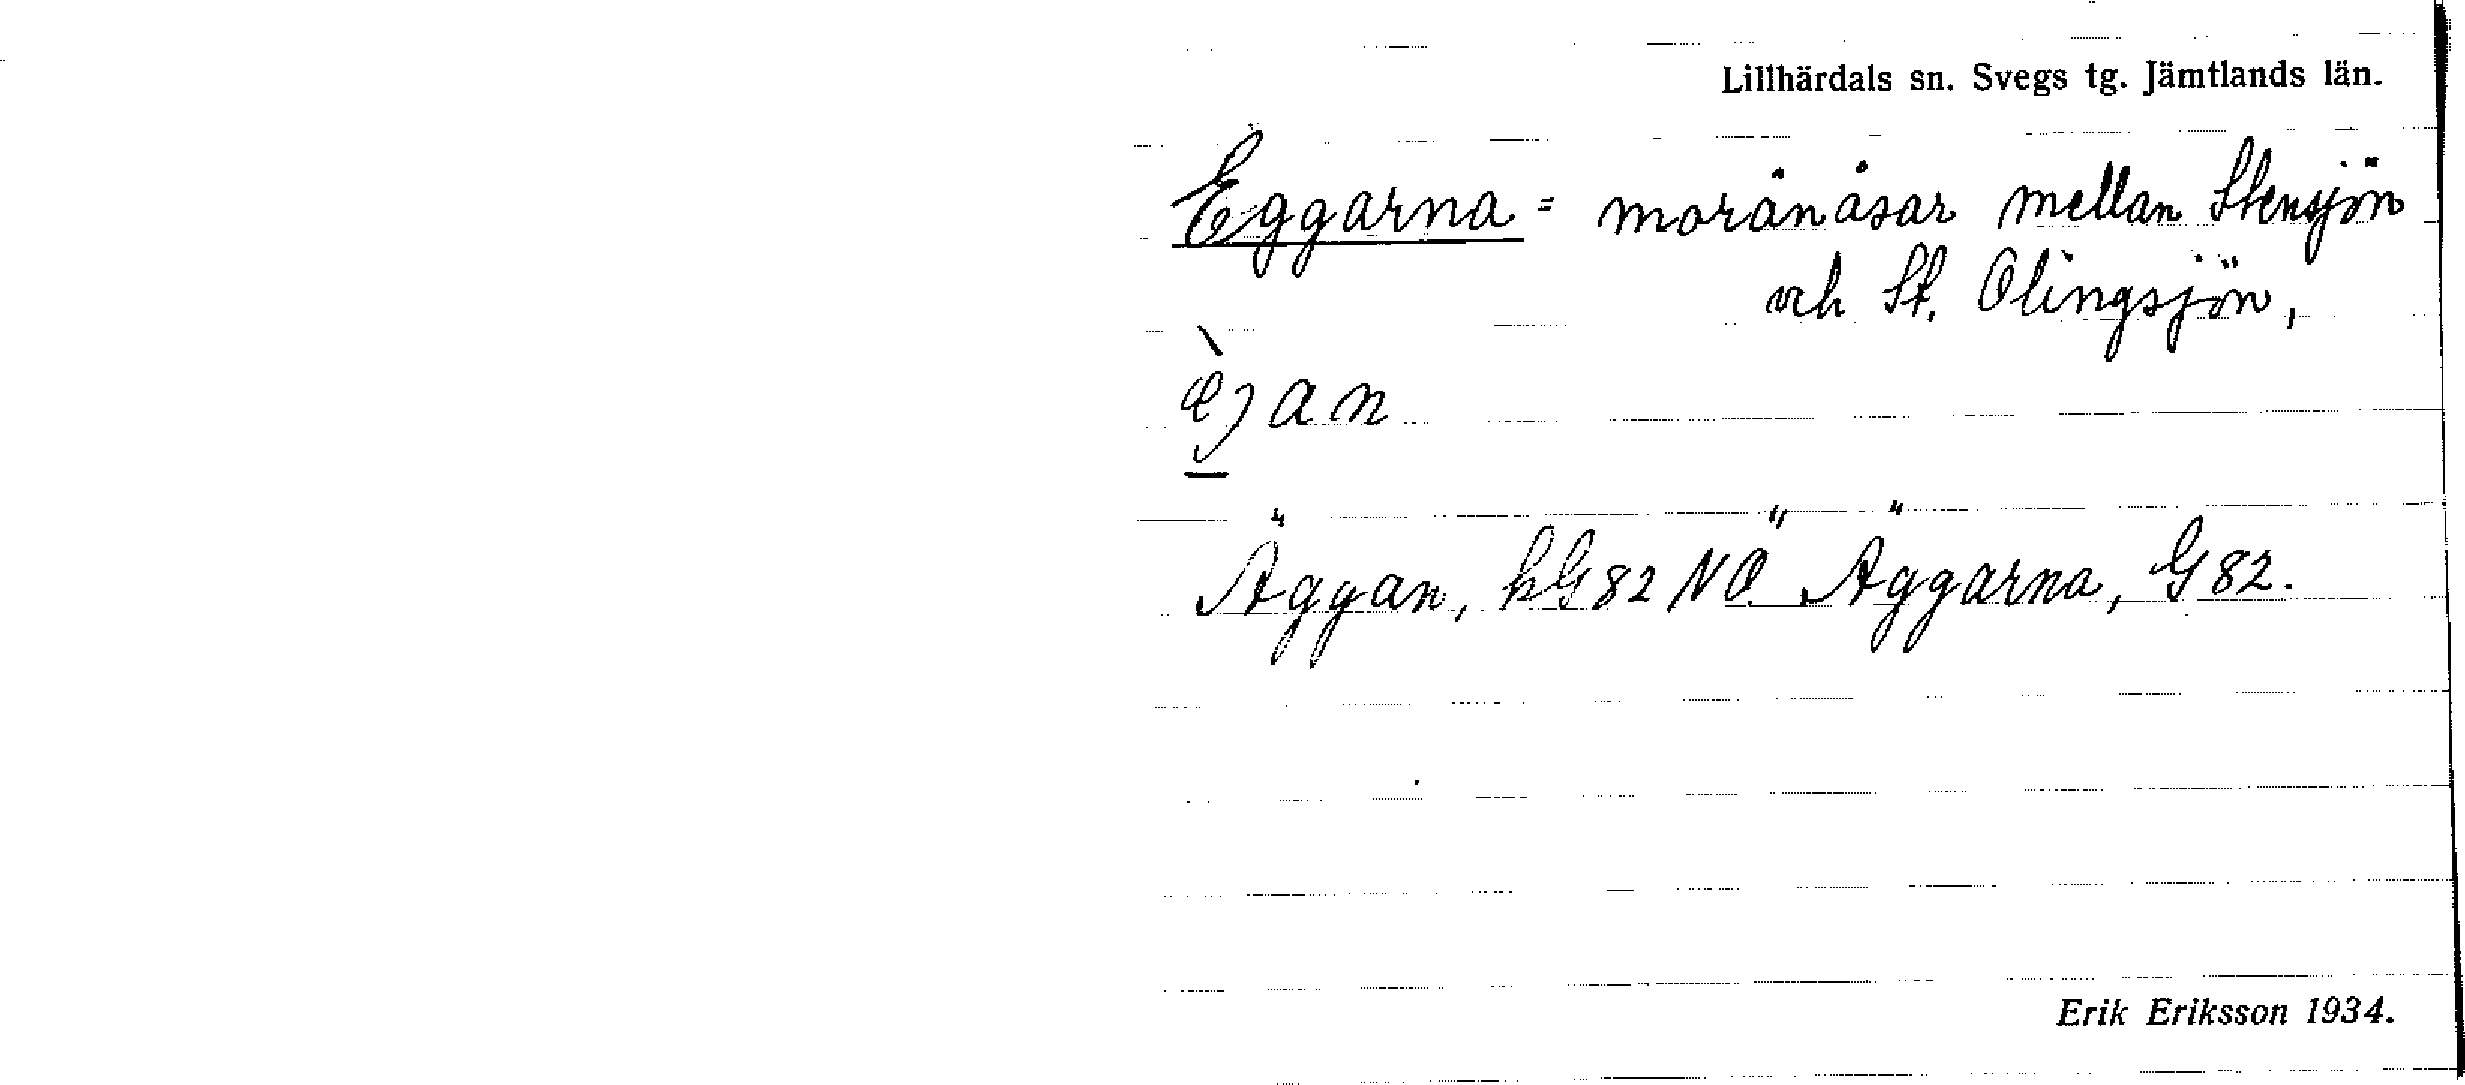 Lillhärdals sn. Svegs tg. Jämtlands län.
Eggarna = moränåsar mellan Stensjön
och St. Olingsjön,
Äggan, hG82 NÖ Äggarna, G82.
Erik Eriksson 1934.